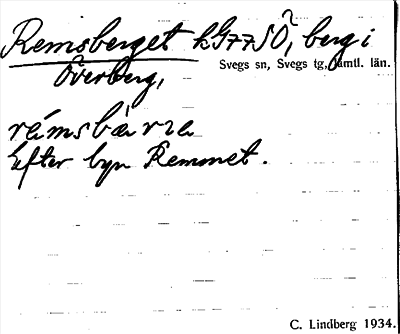 Remsberget kG77SÖ, berg i
Överberg,
Svegs sn, Svegs tg, Jämtl. län.
Efter byn Remmet.
C. Lindberg 1934.